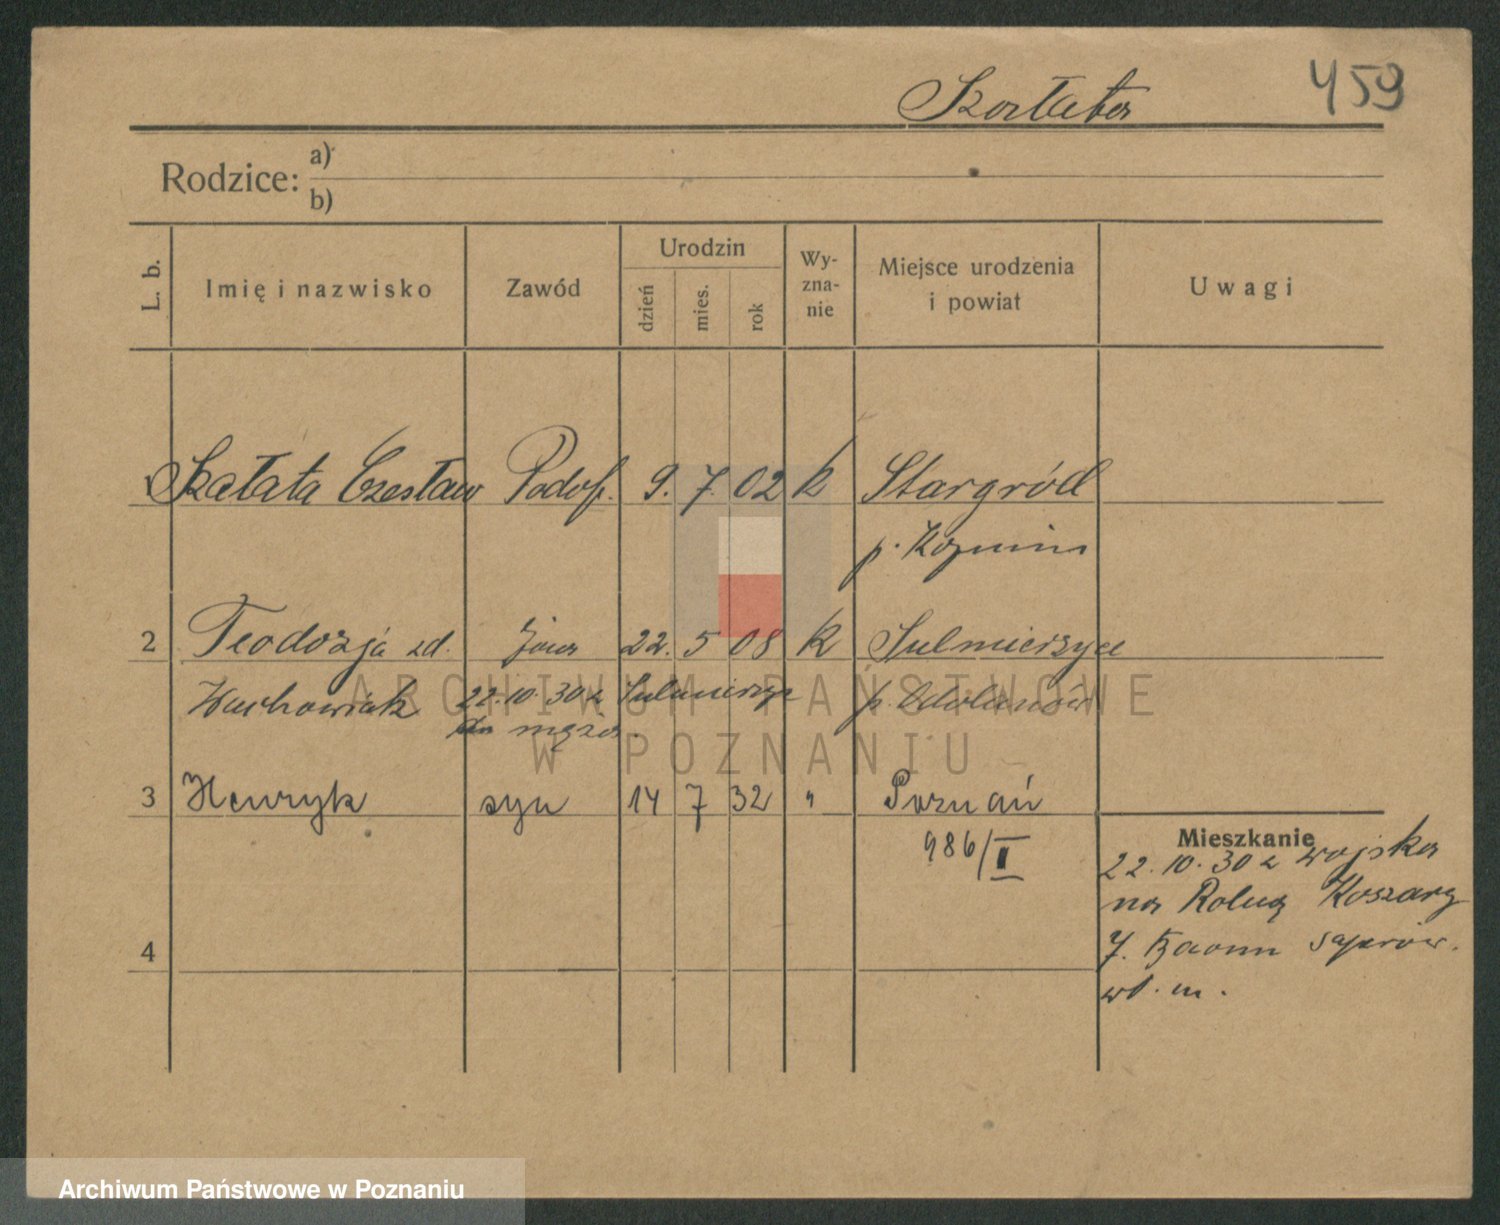 Szałata 459
Rodzice: a)
b)
L. b. Imię i nazwisko Zawód Urodzin dzień mies. rok Wy-zna-nie Miejsce urodzenia i powiat Uwagi
1 Szałata Czesław Podof. 9. 7. 02 k Stargród
p. Kozmin
2 Teodozja zd. żona 22. 5 08 k Sulmierzyce
Wachowiak 22.10.30 z Sulmierzyc p. Odolanów
do męża.
3 Henryk syn 14 7 32 " Poznań
986/II
Mieszkanie
22.10.30 z wojska
na Rolną Koszary
7. Baonu saperów.
4
ARCHIWUM PAŃSTWOWE
W POZNANIU
Archiwum Państwowe w Poznaniu